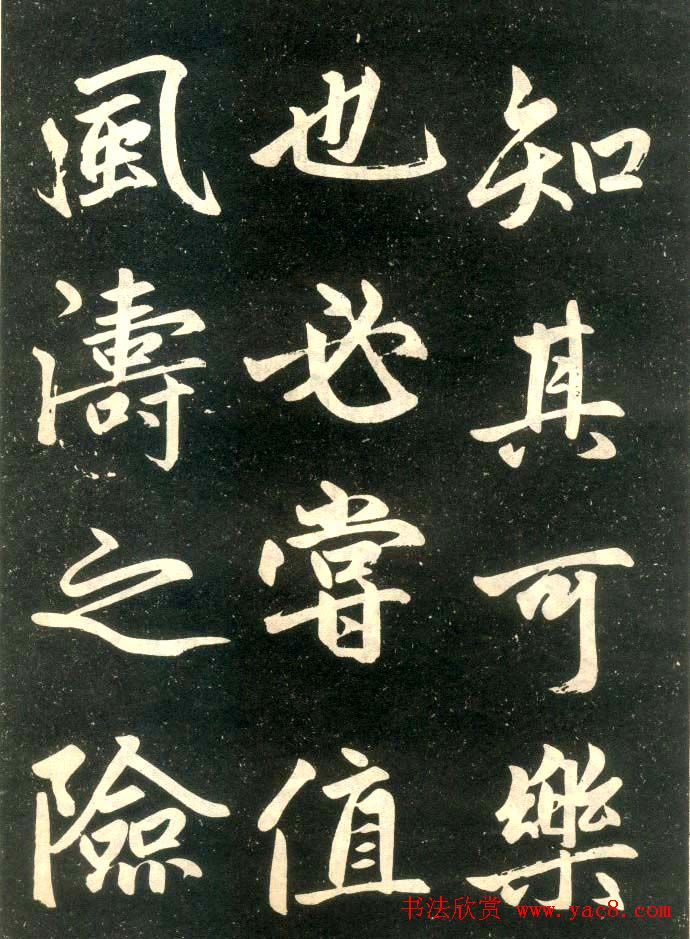 知其可樂
也必嘗值
風濤之險
书法欣赏 www.yac8.com